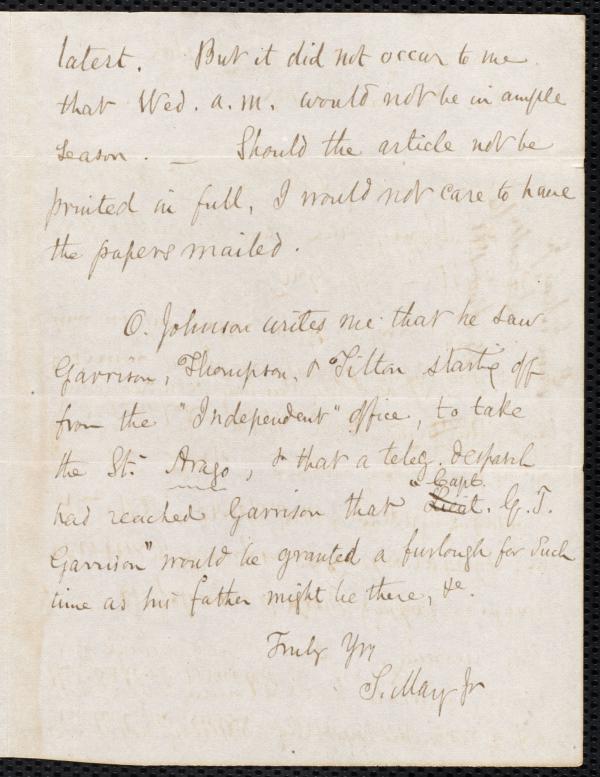 latest. But it did not occur to me
that Wed. a.m. would not be in ample
season. — Should the article not be
printed in full, I would not care to have
the papers mailed.
O. Johnson writes me that he saw
Garrison, Thompson, & Tilton starting off
from the "Independent" office, to take
the St. Arago, & that a teleg. despatch
had reached Garrison that "Capt. Lieut. G. T.
Garrison" would be granted a furlough for such
time as his father might be there, &c.
Truly Yrs
S. May Jr